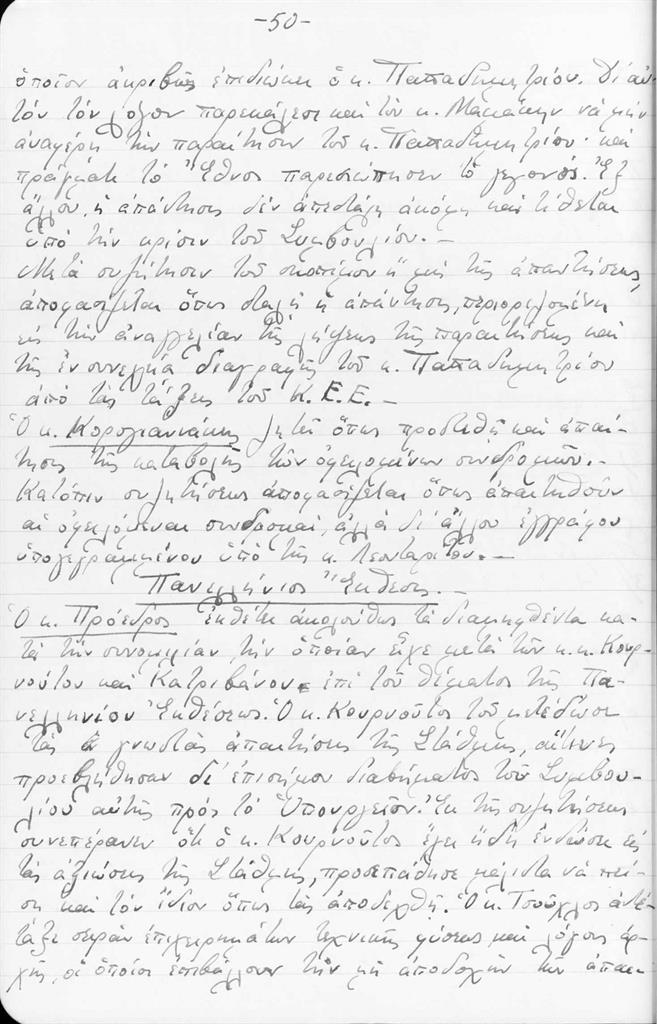 -50-
ὁποῖον ἀκριβῶς ἐπιδιώκει ὁ κ. Παπαδημητρίου. Δι' αὐ-
τόν τόν λόγον παρεκάλεσε καί τόν κ. Μακάκην νά μήν
ἀναφέρῃ τήν παραίτησιν τοῦ κ. Παπαδημητρίου· καί
πράγματι τό Ἔθνος παρεσιώπησεν τό γεγονός. Ἐξ
ἄλλου, ἡ ἀπάντησις δέν ἀπεστάλη ἀκόμη καί τίθεται
ὑπό τήν κρίσιν τοῦ Συμβουλίου. –
Μετά συζήτησιν τοῦ σκοπίμου ἤ μή τῆς ἀπαντήσεως,
ἀποφασίζεται ὅπως σταλῇ ἡ ἀπάντησις, περιοριζομένη
εἰς τήν ἀναγγελίαν τῆς λήψεως τῆς παραιτήσεως καί
τῆς ἐν συνεχείᾳ διαγραφῆς τοῦ κ. Παπαδημητρίου
ἀπό τάς τάξεις τοῦ Κ.Ε.Ε. –
Ὁ κ. Κορογιαννάκης ζητεῖ ὅπως προστεθῇ καί ἀπαί-
τησις τῆς καταβολῆς τῶν ὀφειλομένων συνδρομῶν. –
Κατόπιν συζητήσεως ἀποφασίζεται ὅπως ἀπαιτηθοῦν
αἱ ὀφειλόμεναι συνδρομαί, ἀλλά δι' ἄλλου ἐγγράφου
ὑπογεγραμμένου ὑπό τῆς κ. Λεονταρίτου. –
Πανελλήνιος Ἔκθεσις. –
Ὁ κ. Πρόεδρος ἐκθέτει ἀκολούθως τά διαμειφθέντα κα-
τά τήν συνομιλίαν, τήν ὁποίαν εἶχε μετά τῶν κ.κ. Κουρ-
νούτου καί Κατριβάνου ἐπί τοῦ θέματος τῆς Πα-
νελληνίου Ἐκθέσεως. Ὁ κ. Κουρνοῦτος τοῦ μετέδωσε
τάς γνωστάς ἀπαιτήσεις τῆς Στάθμης, αἵτινες
προεβλήθησαν δι' ἐπισήμου διαβήματος τοῦ Συμβου-
λίου αὐτῆς πρός τό Ὑπουργεῖον. Ἐκ τῆς συζητήσεως
συνεπέρανεν ὅτι ὁ κ. Κουρνοῦτος ἔχει ἤδη ἐνδώσει εἰς
τάς ἀξιώσεις τῆς Στάθμης, προσεπάθησε μάλιστα νά πεί-
σῃ καί τόν ἴδιον ὅπως τάς ἀποδεχθῇ. Ὁ κ. Τσοῦχλος ἀντέ-
ταξε σειράν ἐπιχειρημάτων τεχνικῆς φύσεως καί λόγους ἀρ-
χῆς, οἱ ὁποῖοι ἐπιβάλλουν τήν μή ἀποδοχήν τῶν ἀπαι-